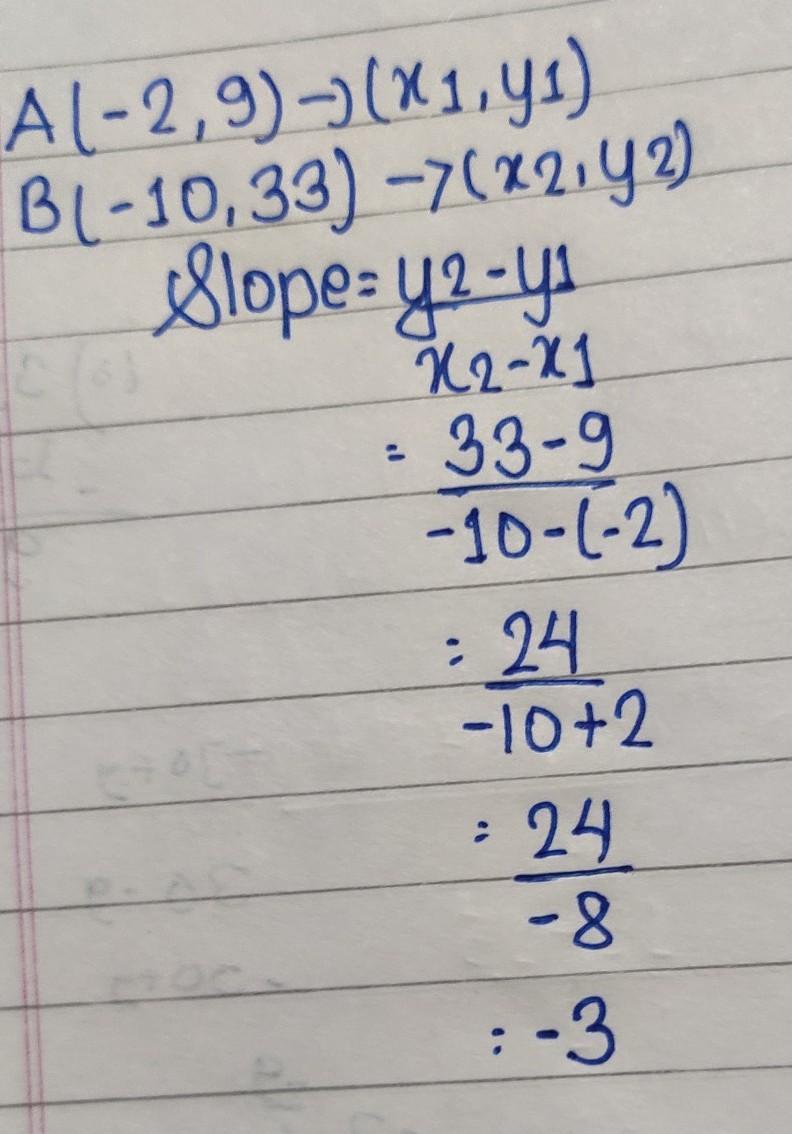 A(-2,9)→(x1,y1)
B(-10,33)→(x2,y2)
Slope=y2-y1
x2-x1
= 33-9
-10-(-2)
= 24
-10+2
= 24
-8
= -3